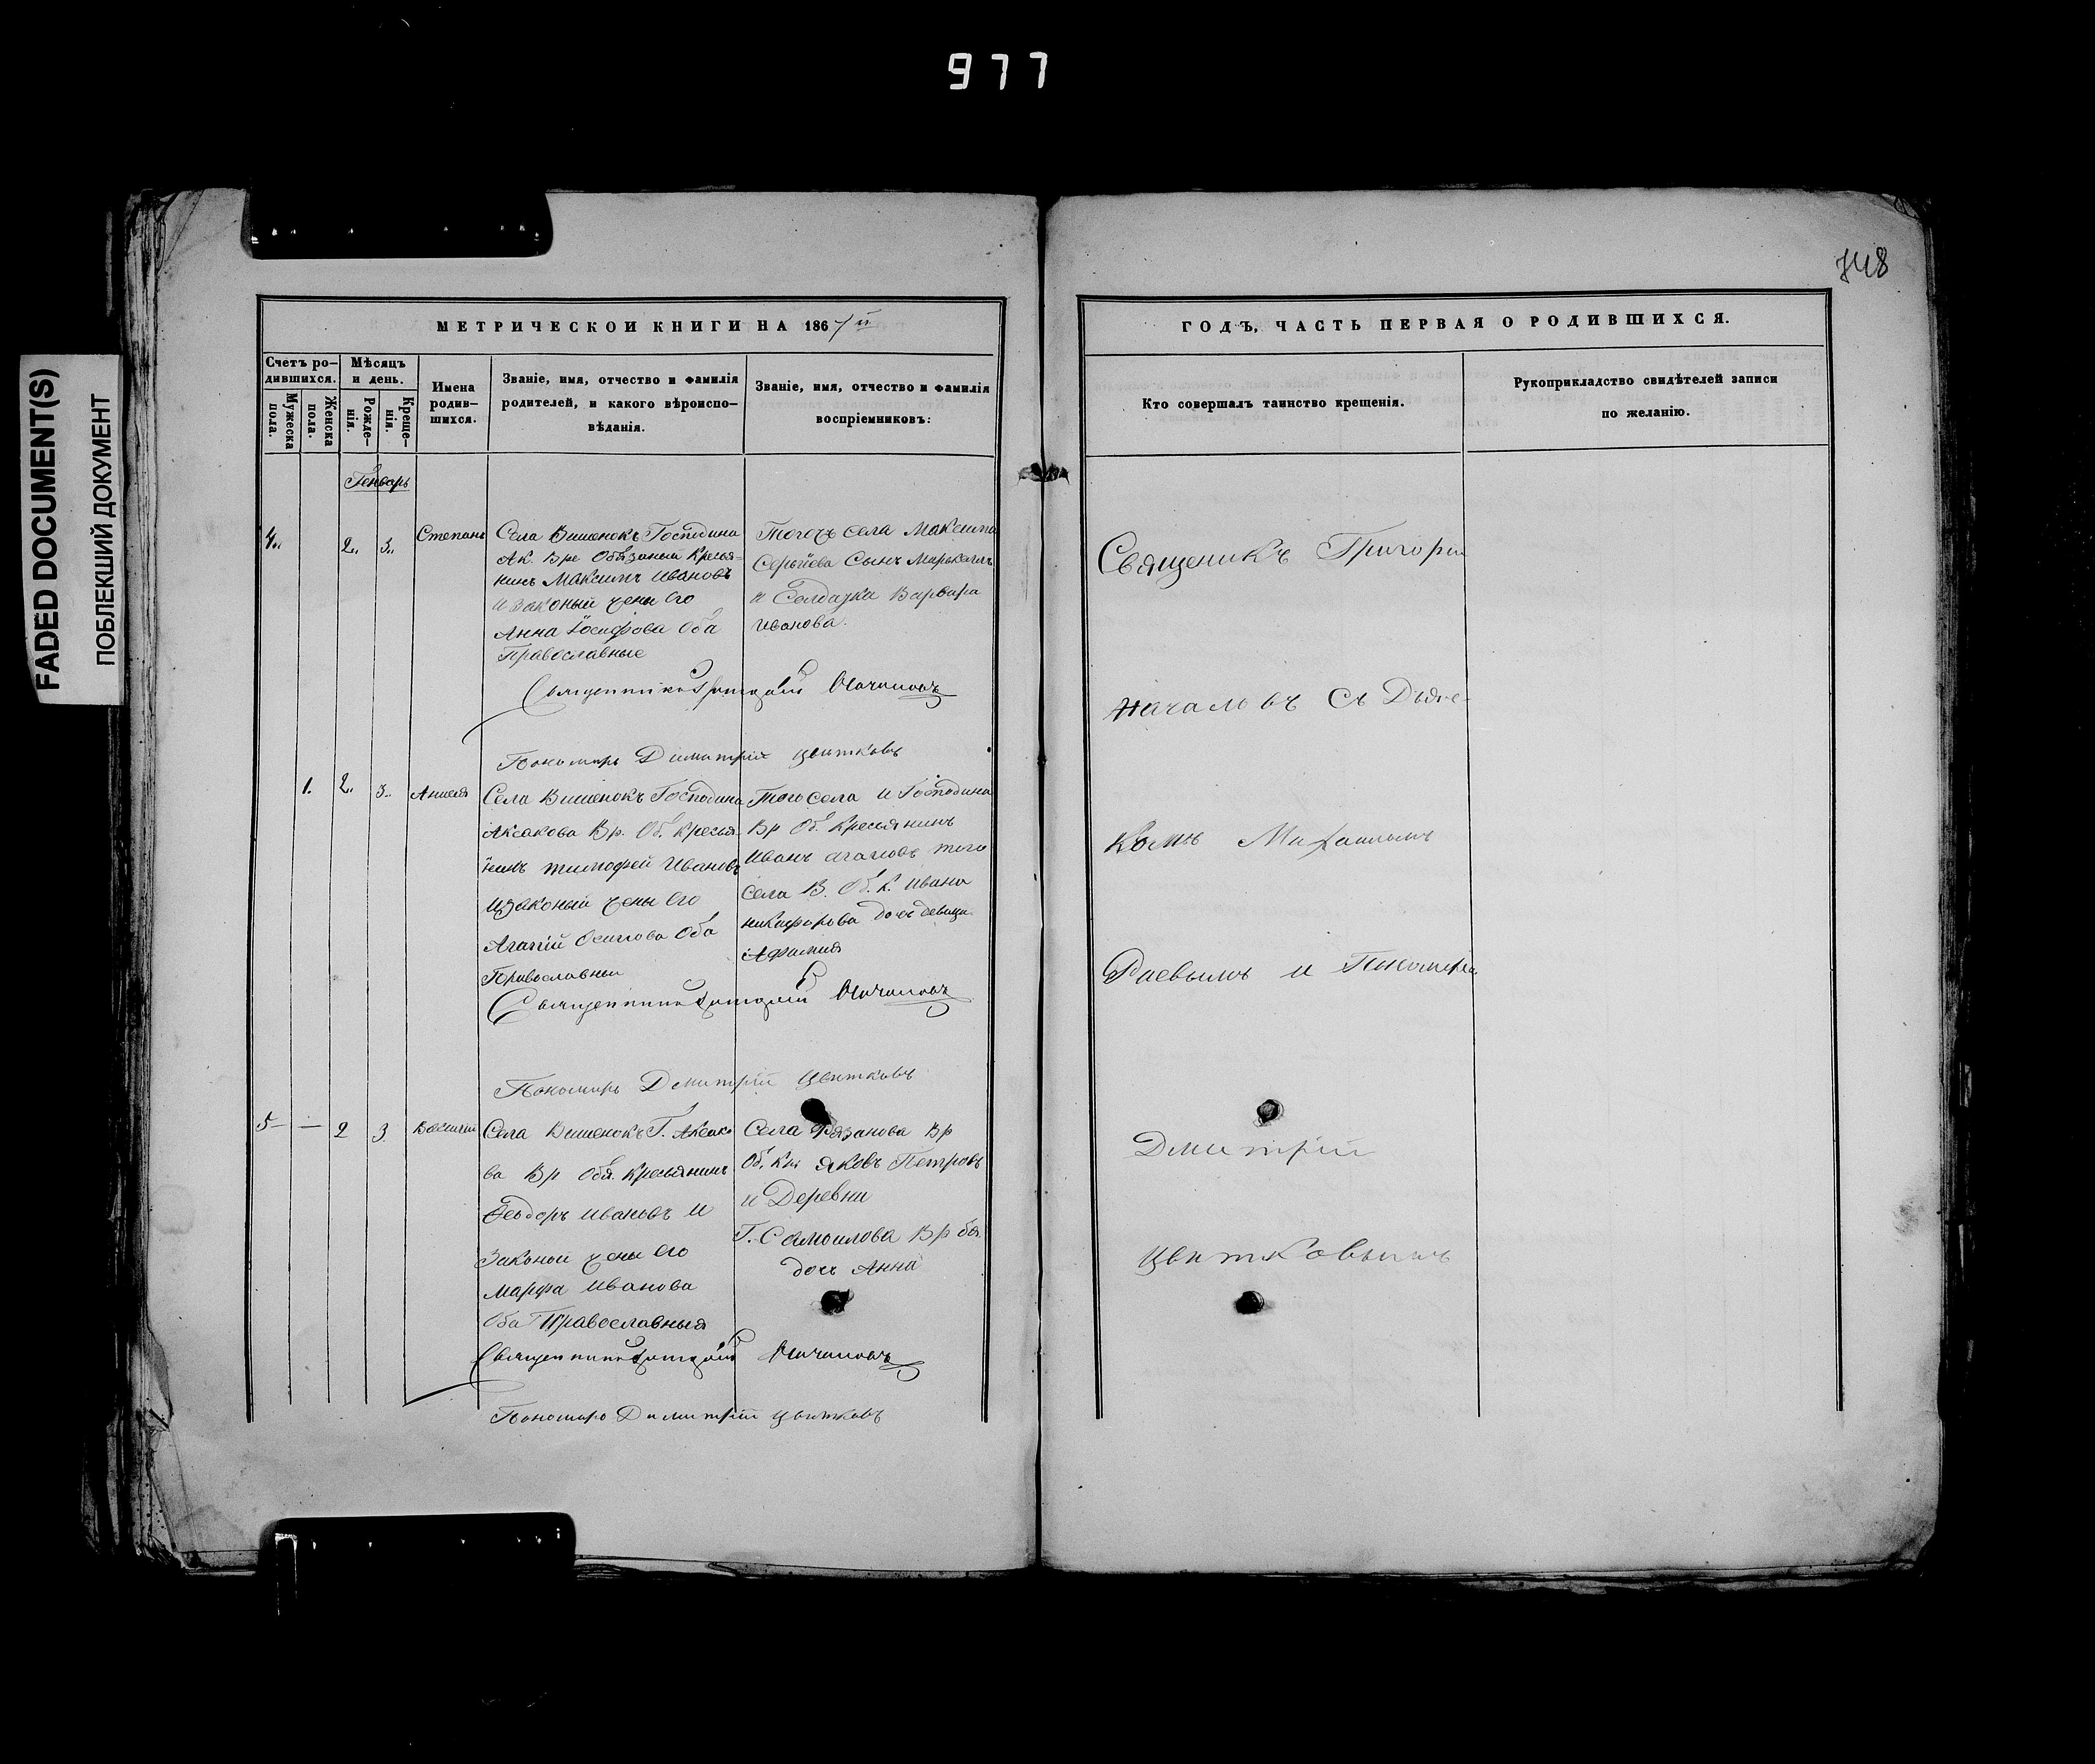 977
FADED DOCUMENT(S)
ПОБЛЕКШИЙ ДОКУМЕНТ
748
МЕТРИЧЕСКОИ КНИГИ НА 1867й
Счетъ ро-
дившихся.
Мужеска
пола.
Женска
пола.
Мѣсяцъ
и день.
Рожде-
нія.
Креще-
нія.
Имена
родив-
шихся.
Званіе, имя, отчество и фамилія
родителей, и какого вѣроиспо-
вѣданія.
Званіе, имя, отчество и фамилія
воспріемниковъ:
Генварь
4.. 2.. 3..
Степанъ
Села Вишенокъ Господина
Ак. Вре Обязаный Кресья-
нинъ Максимъ Ивановъ
и законый жены его
Анна Іосифова Оба
Православные
Тогожъ села Максима
Сергѣева Сынъ
и Солдатка Варвара
Иванова.
Священникъ Григорій Началовъ
Пономарь Димитрій Цвѣтковъ
1. 2.. 3..
Села Вишенокъ Господина
Аксакова Вр. Об. Кресья-
нинъ Тимофей Ивановъ
и законый жены его
Агапій Осипова Оба
Православныи
Того села и Господина
Вр Об. Кресьянинъ
Иванъ Агаповъ того
села В. Об. К. Ивана
Никифорова дочь девица
Афимия
Священникъ Григорій Началовъ
Пономарь Дмитрій Цвѣтковъ
5 — — 2 3
Василій
Села Вишенокъ Г. Аксако
ва Вр Обя. Кресьянинъ
Ѳеодоръ Ивановъ и
Законой жены его
Марфа Иванова
Оба Православныя
Села Рязанова Вр
Об. Кр. Яковъ Петровъ
и Деревни
Г. Самоилова Вр бя
дочь Анна
Священникъ Григорій Началовъ
Пономарь Димитрій Цвѣтковъ
ГОДЪ, ЧАСТЬ ПЕРВАЯ О РОДИВШИХСЯ.
Кто совершалъ таинство крещенія.
Рукоприкладство свидѣтелей записи
по желанію.
Священикъ Григорій
Началовъ Съ Дьяч-
комъ Михаиломъ
Раевымъ и Пономарем
Дмитрій
Цвѣтковымъ